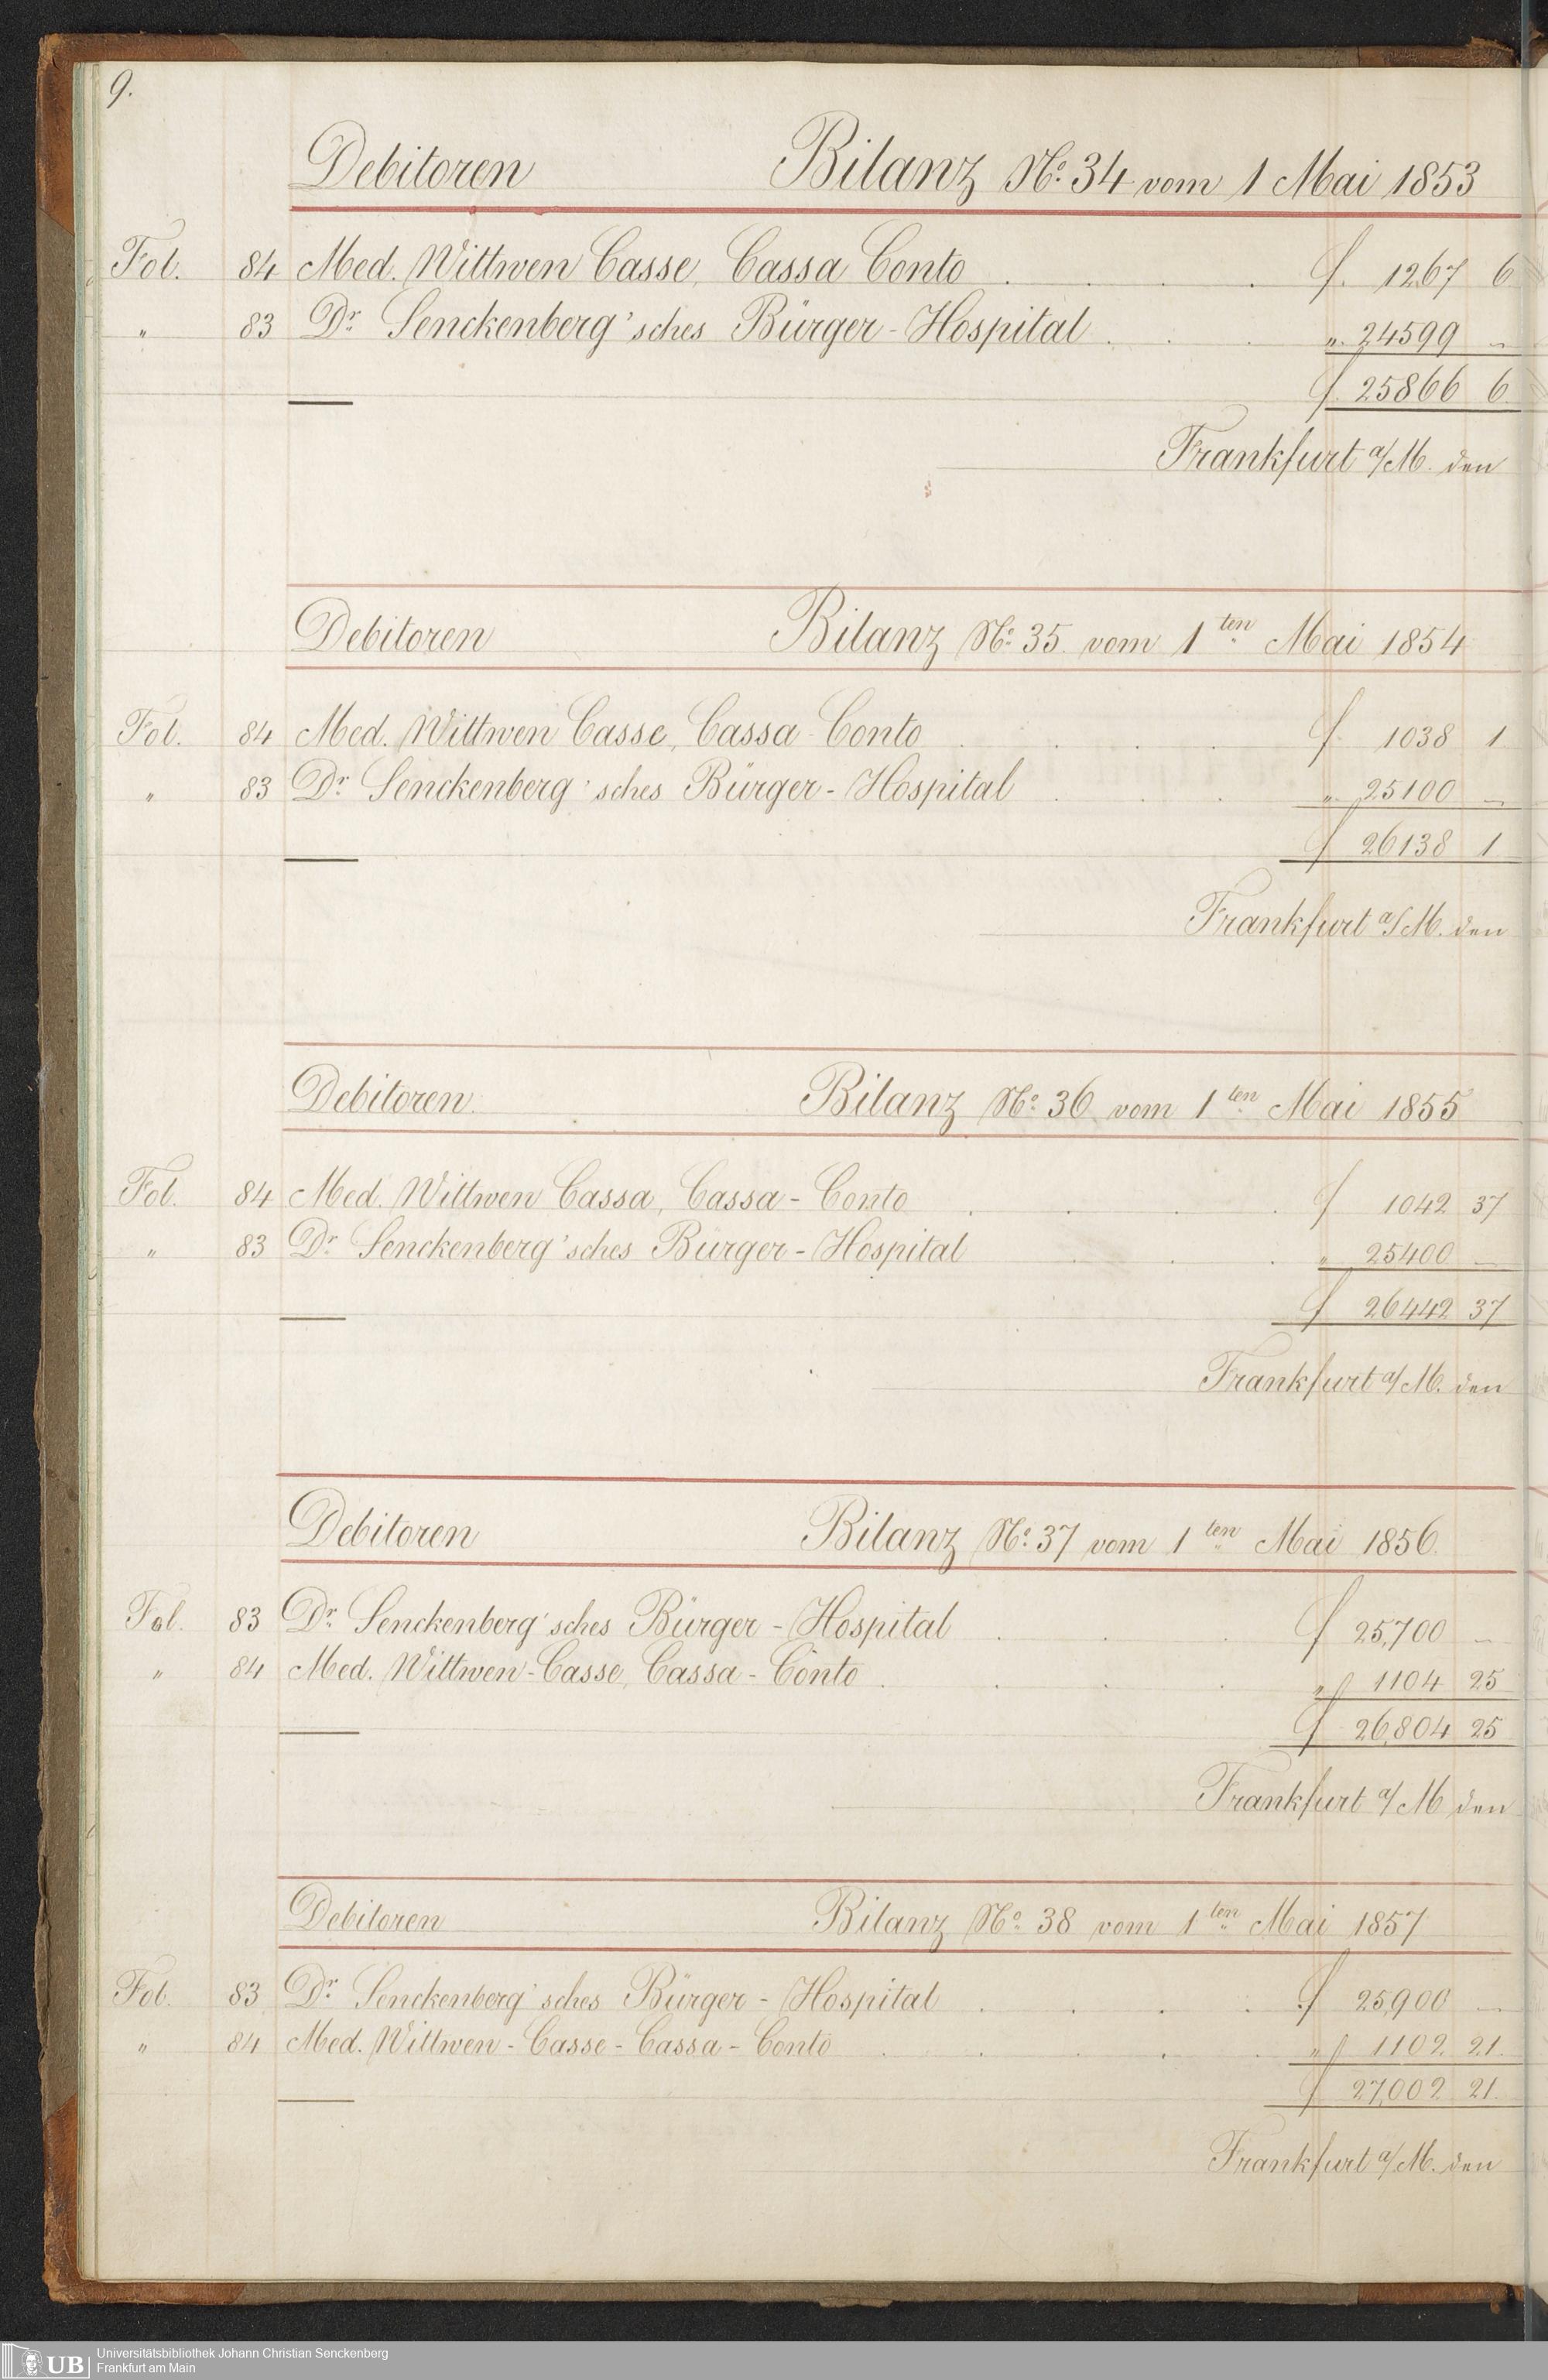 9.
Debitoren Bilanz No. 34 vom 1 Mai 1853
Fol. 84 Med. Wittwen Casse, Cassa Conto . . . . f. 1267 6
" 83 Dr. Senckenberg'sches Bürger-Hospital . . . ". 24599 —
f. 25866 6
Frankfurt a/M. den
Debitoren Bilanz No. 35. vom 1ten Mai 1854
Fol. 84 Med. Wittwen Casse, Cassa-Conto . . . . f. 1038 1
" 83 Dr. Senckenberg'sches Bürger-Hospital . . . ". 25100 —
f 26138 1
Frankfurt a/M. den
Debitoren. Bilanz No. 36 vom 1ten Mai 1855
Fol. 84 Med. Wittwen Cassa, Cassa-Conto . . . . f 1042 37
" 83 Dr. Senckenberg'sches Bürger-Hospital . . . " 25400 —
f 26442 37
Frankfurt a/M. den
Debitoren Bilanz No. 37 vom 1ten Mai 1856.
Fol. 83 Dr. Senckenberg'sches Bürger-Hospital . . . f 25,700 —
" 84 Med. Wittwen-Casse, Cassa-Conto . . . . " f 1104 25
f 26,804 25
Frankfurt a/M den
Debitoren Bilanz No. 38 vom 1ten Mai 1857
Fol. 83 Dr. Senckenberg'sches Bürger-Hospital . . . . f 25,900 —
" 84 Med. Wittwen-Casse-Cassa-Conto . . . . . " f 1102 21.
f 27,002 21.
Frankfurt a/M. den
UB
Universitätsbibliothek Johann Christian Senckenberg
Frankfurt am Main